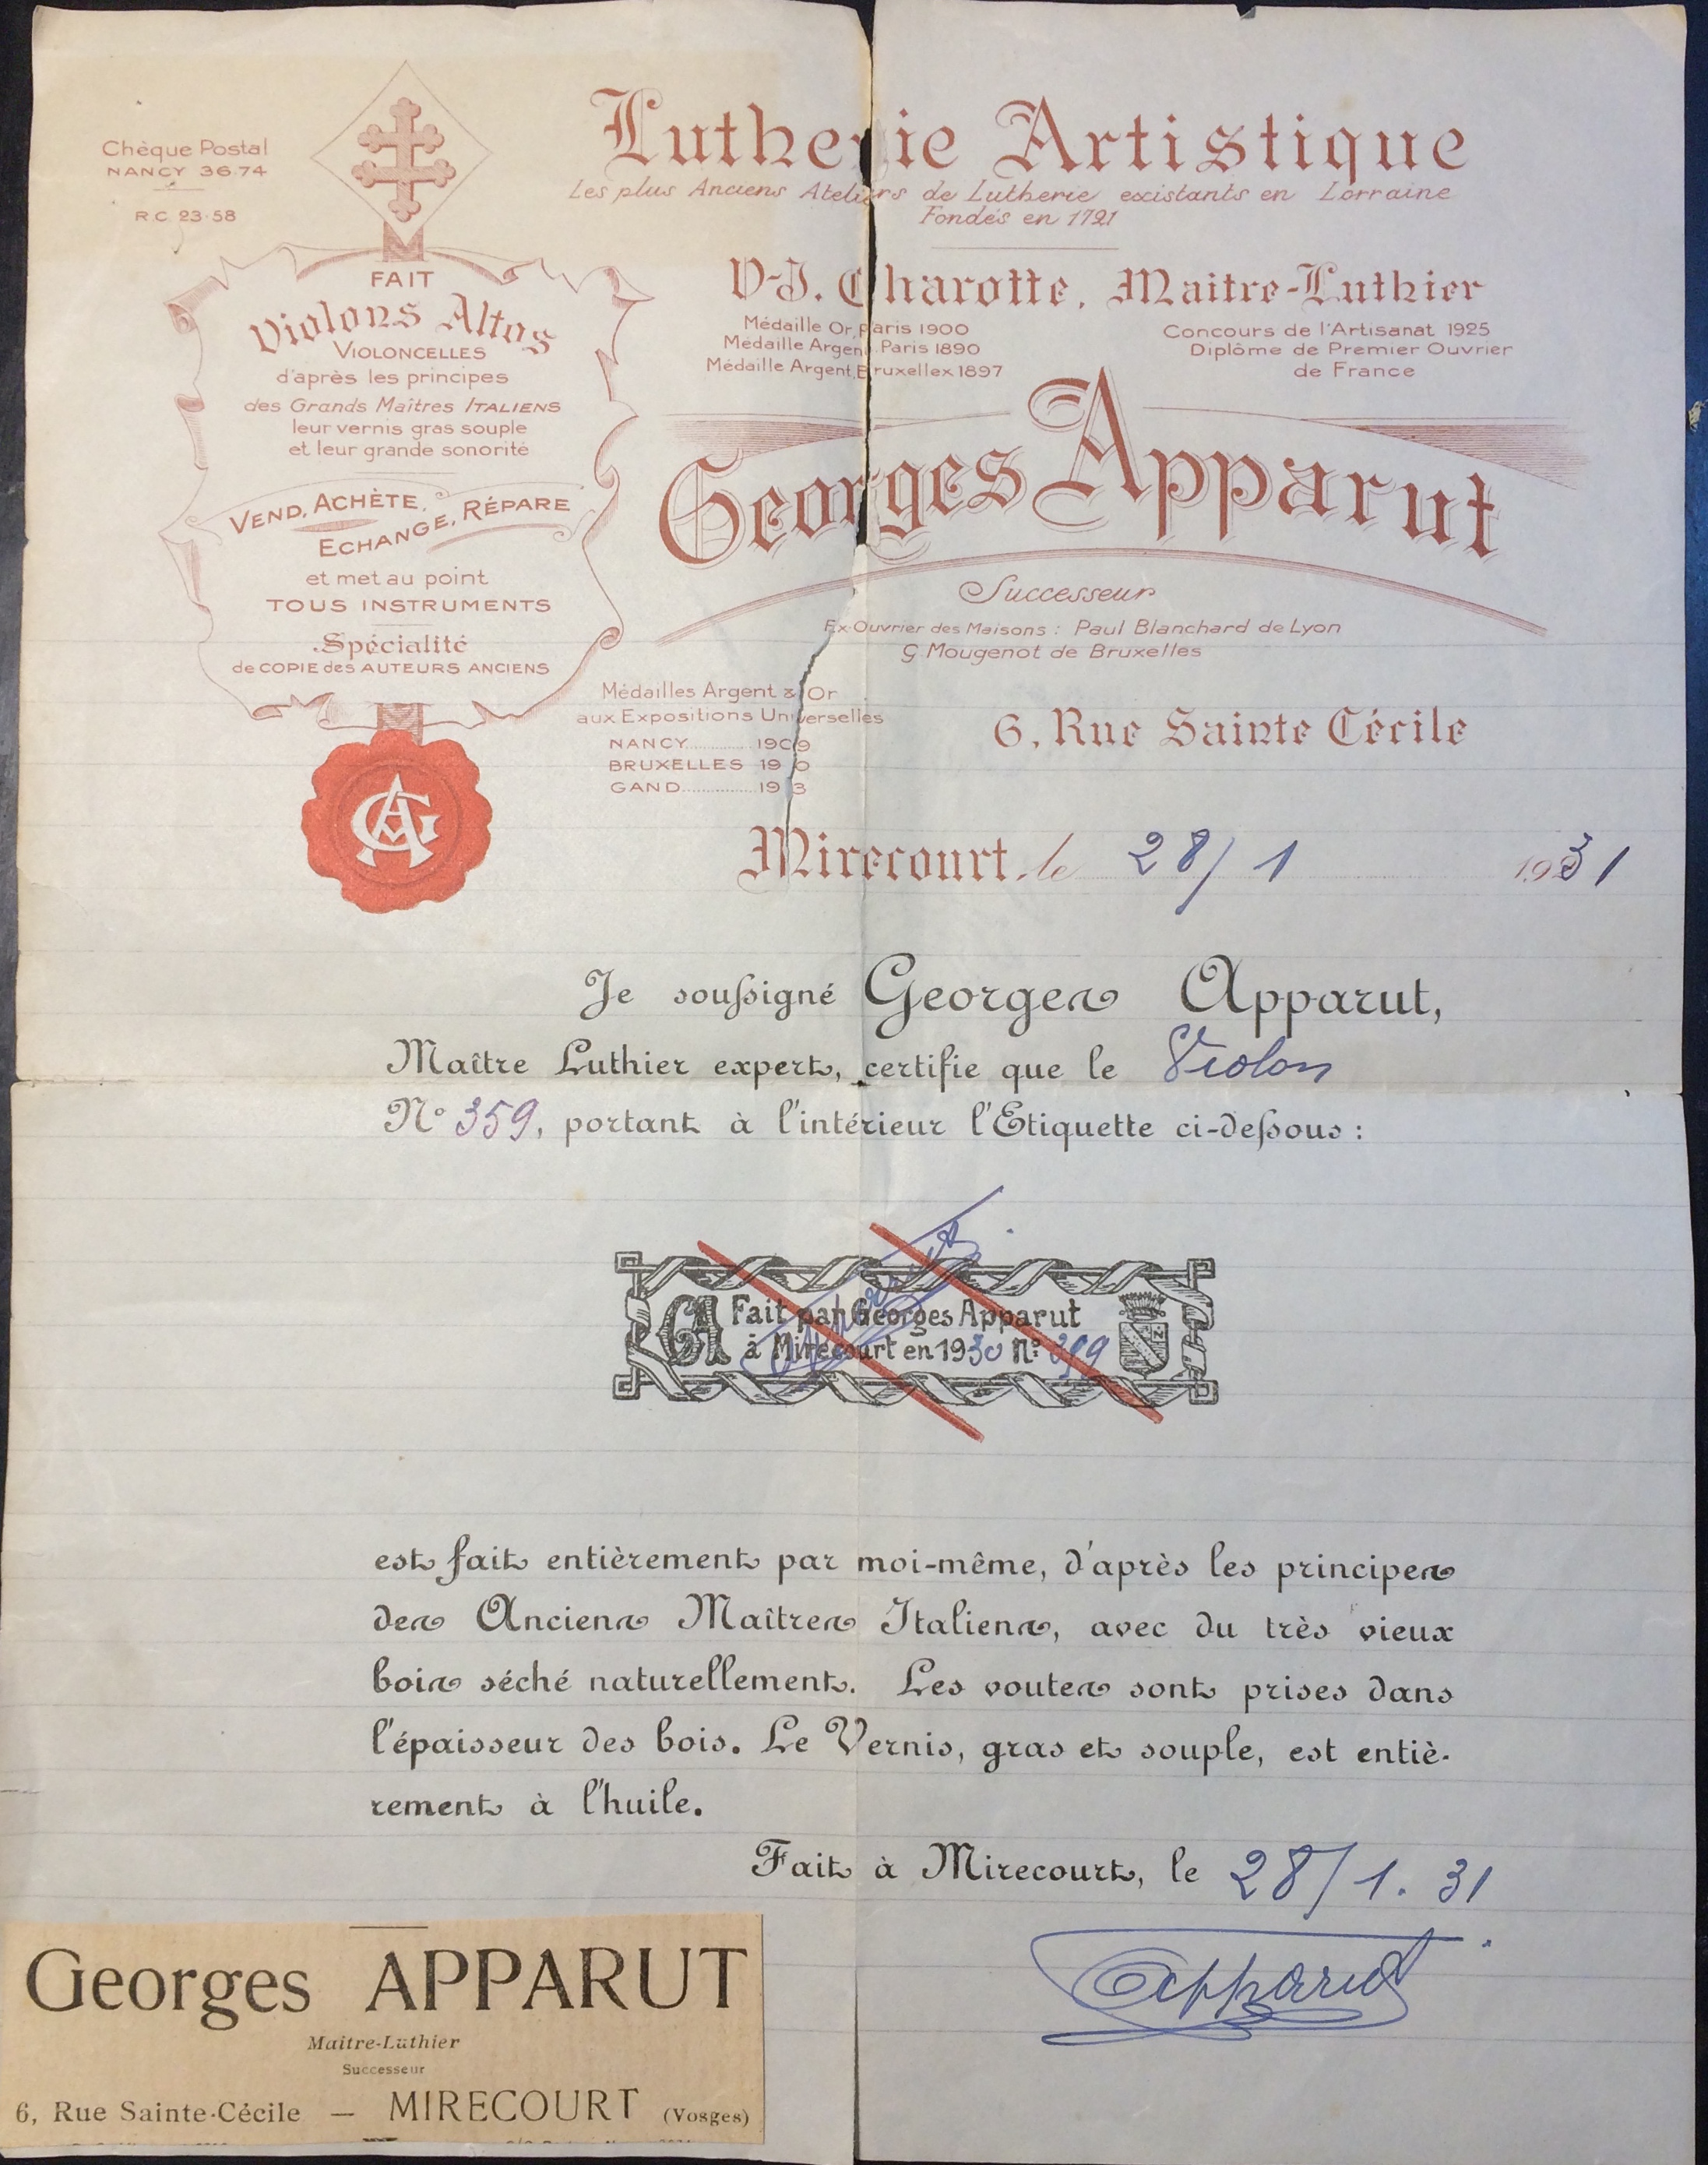 Chèque Postal
NANCY 36.74
R C 23.58
FAIT
Violons Altos
VIOLONCELLES
d'après les principes
des Grands Maîtres ITALIENS
leur vernis gras souple
et leur grande sonorité
VEND, ACHÈTE,
ECHANGE, RÉPARE
et met au point
TOUS INSTRUMENTS
Spécialité
de COPIE des AUTEURS ANCIENS
GA
Lutherie Artistique
Les plus Anciens Ateliers de Lutherie existants en Lorraine
Fondés en 1721
V-J. Charotte, Maitre-Luthier
Médaille Or, Paris 1900
Médaille Argent Paris 1890
Médaille Argent, Bruxellex 1897
Concours de l'Artisanat 1925
Diplôme de Premier Ouvrier
de France
Georges Apparut
Successeur
Ex-Ouvrier des Maisons : Paul Blanchard de Lyon
G Mougenot de Bruxelles
Médailles Argent & Or
aux Expositions Universelles
NANCY.............. 1909
BRUXELLES 1910
GAND................ 1913
6, Rue Sainte Cécile
Mirecourt, le 28/1 1931
Je soussigné Georges Apparut,
Maître Luthier expert, certifie que le Violon
N° 359, portant à l'intérieur l'Etiquette ci-dessous :
GA Fait par Georges Apparut
à Mirecourt en 1930 N° 359
Apparut
est fait entièrement par moi-même, d'après les principes
des Anciens Maîtres Italiens, avec du très vieux
bois séché naturellement. Les voutes sont prises dans
l'épaisseur des bois. Le Vernis, gras et souple, est entiè-
rement à l'huile.
Fait à Mirecourt, le 28/1.31
Apparut
Georges APPARUT
Maître-Luthier
Successeur
6, Rue Sainte-Cécile — MIRECOURT (Vosges)